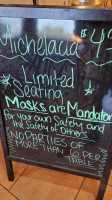 Michelada $4
Limited
Seating
Masks are Mandatory
for your own Safety and
the Safety of Others
NO PARTIES OF
MORE THAN 10 PEOPLE
TABLE